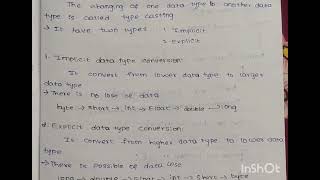 The changing of one data type to another data
type is called type casting
→ It have two types 1 Implicit
2 Explicit
1. Implicit data type conversion:
It convert from lower data type to larger
data type
→ There is no lose of data
byte → short → int → float → double → long
2. Explicit data type conversion:
Is convert from higher data type to lower data
type
→ There is possible of data lose
long → double → float → int → short → byte
InShOt